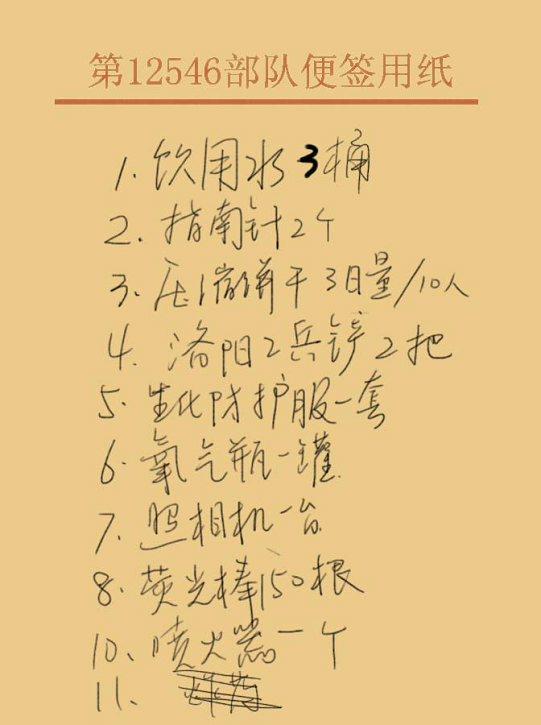 第12546部队便签用纸
1. 饮用水3桶
2. 指南针2个
3. 压缩饼干3日量/10人
4. 洛阳工兵铲2把
5. 生化防护服一套
6. 氧气瓶一罐
7. 照相机一台
8. 荧光棒150根
10、喷火器一个
11.